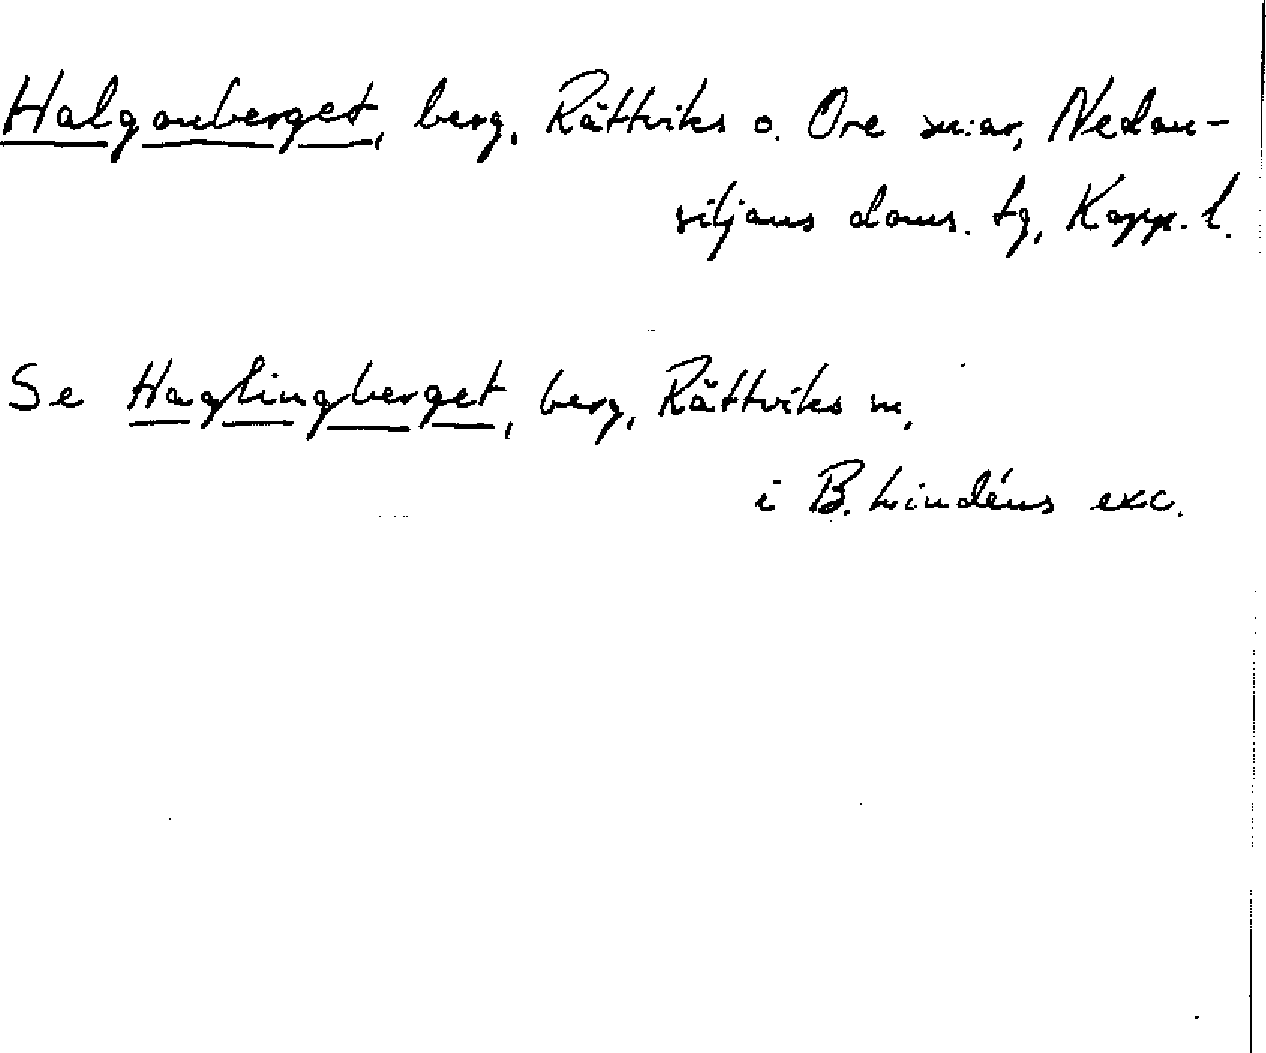 Halgonberget, berg, Rättviks o. Ore sn:ar, Nedan-
siljans doms. tg, Kopp. l.
Se Haglingberget, berg, Rättviks sn,
i B. Lindéns exc.